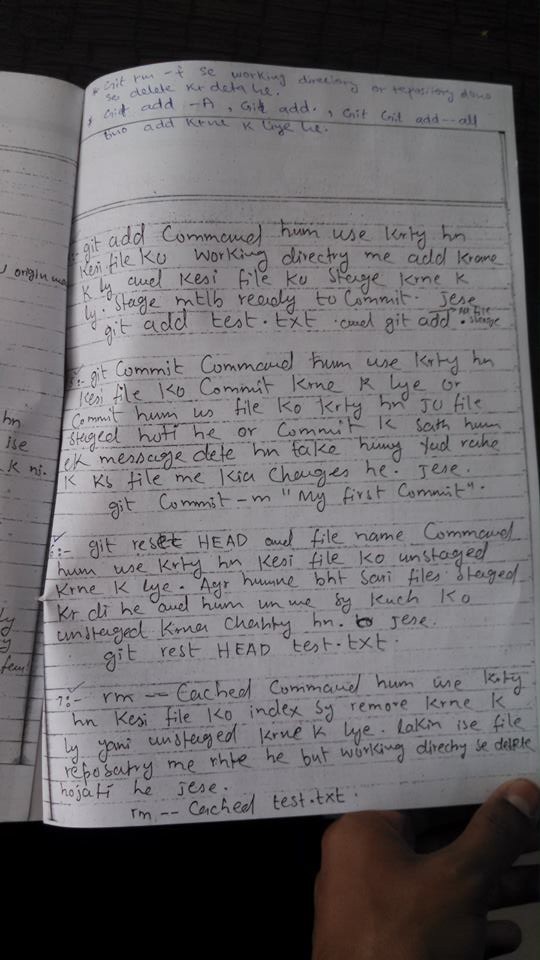 * Git rm -f se working directory or repository dono
se delete kr deta he.
* Git add -A, Git add., Git Git add --all
two add krne k liye he.
:- git add Command hum use krty hn
kesi file ko working directry me add krane
k ly and kesi file ko Stage krne k
ly. Stage mtlb ready to Commit. Jese
git add test.txt and git add .
:- git Commit Command hum use krty hn
kesi file ko Commit krne k lye or
Commit hum us file ko krty hn JO file
staged hoti he or Commit k sath hum
ek message dete hn take humy yad rahe
k ks file me kia changes he. Jese.
git Commit -m "My first Commit".
:- git reset HEAD and file name Command
hum use krty hn kesi file ko unstaged
krne k lye. Agr humne bht sari files staged
kr di he and hum un me sy kuch ko
unstaged krna chahty hn. Jese.
git rest HEAD test.txt.
7:- rm -- Cached Command hum use krty
hn kesi file ko index sy remore krne k
ly yani unstaged krne k lye. lakin ise file
reposatry me rhte he but working directry se delete
hojati he jese.
rm -- Cached test.txt.
origin
hn
ise
k
ly
y